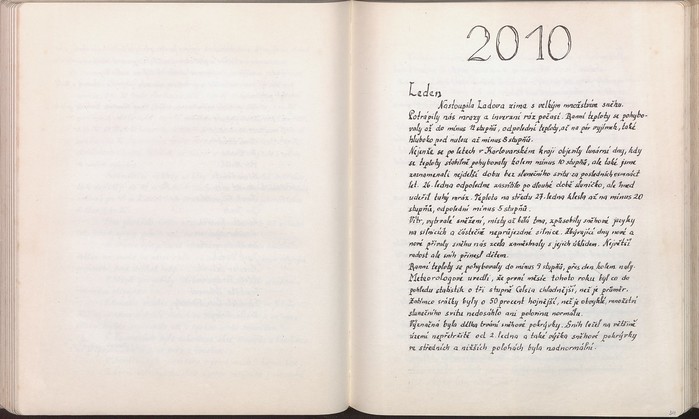 2010
Leden
Nastoupila Ladova zima s velkým množstvím sněhu.
Potrápily nás mrazy a inverzní ráz počasí. Ranní teploty se pohybo-
valy až do minus 12 stupňů, odpolední teploty, až na pár výjimek, také
hluboko pod nulou až minus 8 stupňů.
Nejenže se po letech v Karlovarském kraji objevily lunární dny, kdy
se teploty stabilně pohybovaly kolem minus 10 stupňů, ale také jsme
zaznamenali nejdelší dobu bez slunečního svitu za posledních
let. 26. ledna odpoledne zasvítilo po dlouhé době sluníčko, ale hned
udeřil tuhý mráz. Teplota na středu 27. ledna klesla až na minus 20
stupňů, odpolední minus 5 stupňů.
Vítr, vytrvalé sněžení, místy až bílá tma, způsobily sněhové jazyky
na silnicích a částečně neprůjezdné silnice. Zbývající dny nové a
nové přívaly sněhu nás zcela zaměstnaly s jejich úklidem. Největší
radost ale sníh přinesl dětem.
Ranní teploty se pohybovaly do minus 9 stupňů, přes den kolem nuly.
Meteorologové uvedli, že první měsíc tohoto roku byl co do
pohledu statistik o tři stupně Celsia chladnější, než je průměr.
Zatímco srážky byly o 50 procent hojnější, než je obvyklé, množství
slunečního svitu nedosáhlo ani poloviny normálu.
Význačná byla délka trvání sněhové pokrývky. Sníh ležel na většině
území nepřetržitě od 2. ledna a také výška sněhové pokrývky
ve středních a nižších polohách byla nadnormální.